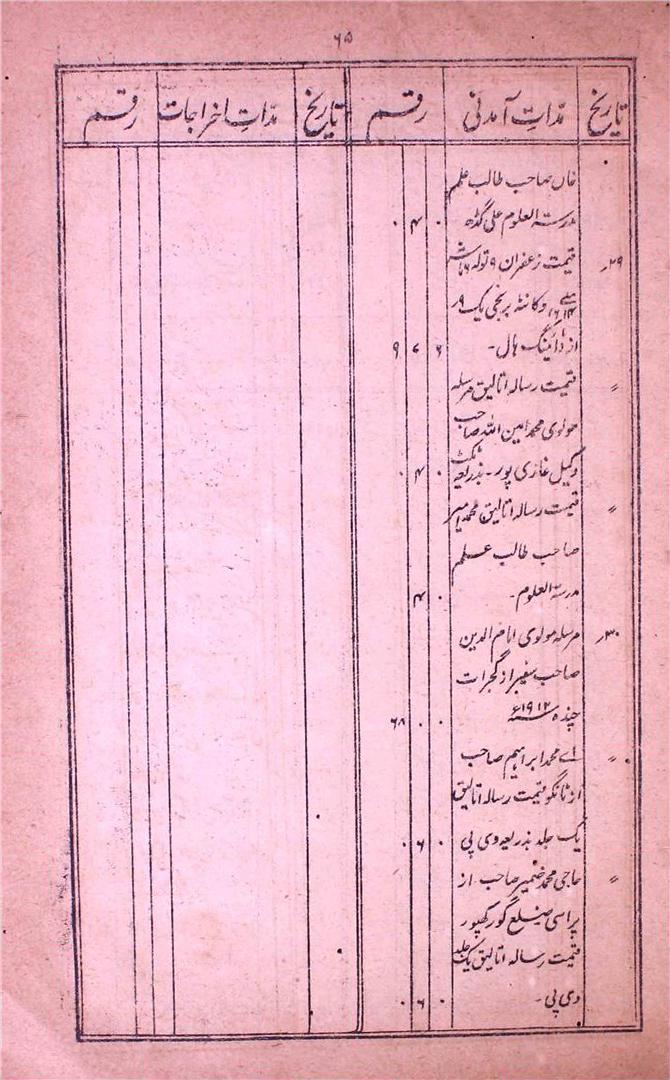 ۶۵
تاریخ مدّاتِ آمدنی رقم تاریخ مدّاتِ اخراجات رقم
خاں صاحب طالب علم
مدرستہ العلوم علی گڈھ ۰ ۴ ۰
۲۹ر قیمت زعفران ۹ تولہ ۶ ماشہ
وکانٹہ برنجی یک ۹ر
از ڈائینگ ہال۔ ۶ ۷ ۹
〃 قیمت رسالہ اتالیق مرسلہ
مولوی محمد امین اللہ صاحب
وکیل غازی پور۔ بذریعہ ٹکٹ ۰ ۴ ۰
〃 قیمت رسالہ اتالیق محمد امیر
صاحب طالب علم
مدرستہ العلوم۔ ۰ ۴
۳۰ر مرسلہ مولوی امام الدین
صاحب سفیر از گجرات
چندہ ۱۹۱۲ء ۰ ۰ ۶۸
〃 اے محمد ابراہیم صاحب
از ٹانگو قیمت رسالہ اتالیق
یک جلد بذریعہ وی پی ۰ ۶ ۰
〃 حاجی محمد ضمیر صاحب از
پراسی ضلع گورکھپور
قیمت رسالہ اتالیق یک جلد
وی پی۔ ۰ ۶ ۰